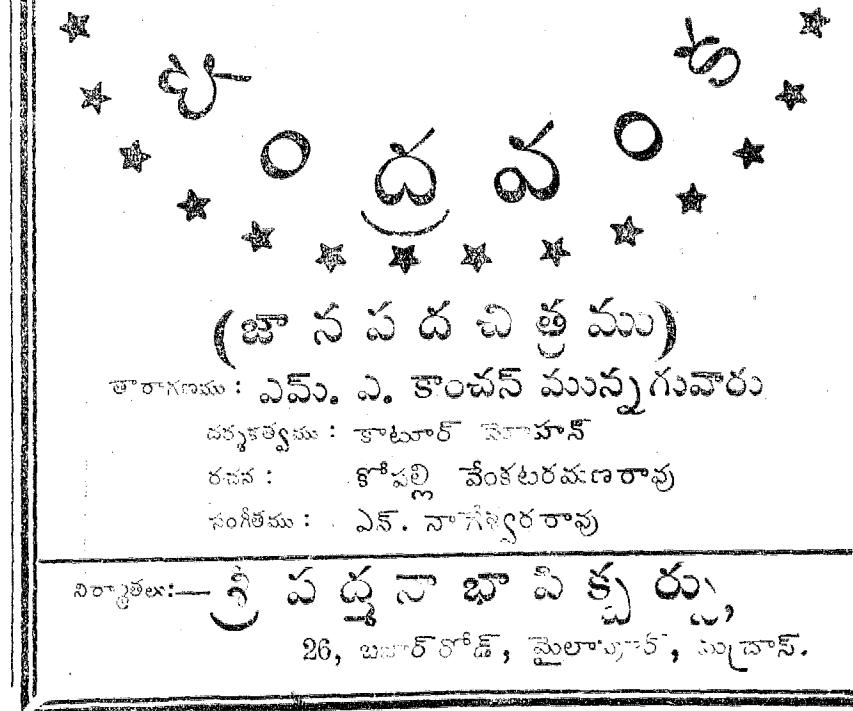 చంద్రవంక
(జానపదచిత్రము)
తారాగణము : ఎమ్. ఎ. కాంచన్ మున్నగువారు
దర్శకత్వము : కాటూర్ మోహన్
రచన : కోపల్లి వేంకటరమణరావు
సంగీతము : ఎన్. నాగేశ్వరరావు
నిర్మాతలు:— శ్రీ పద్మనాభా పిక్చర్సు,
26, బజార్‌రోడ్, మైలాపూర్, మద్రాస్.